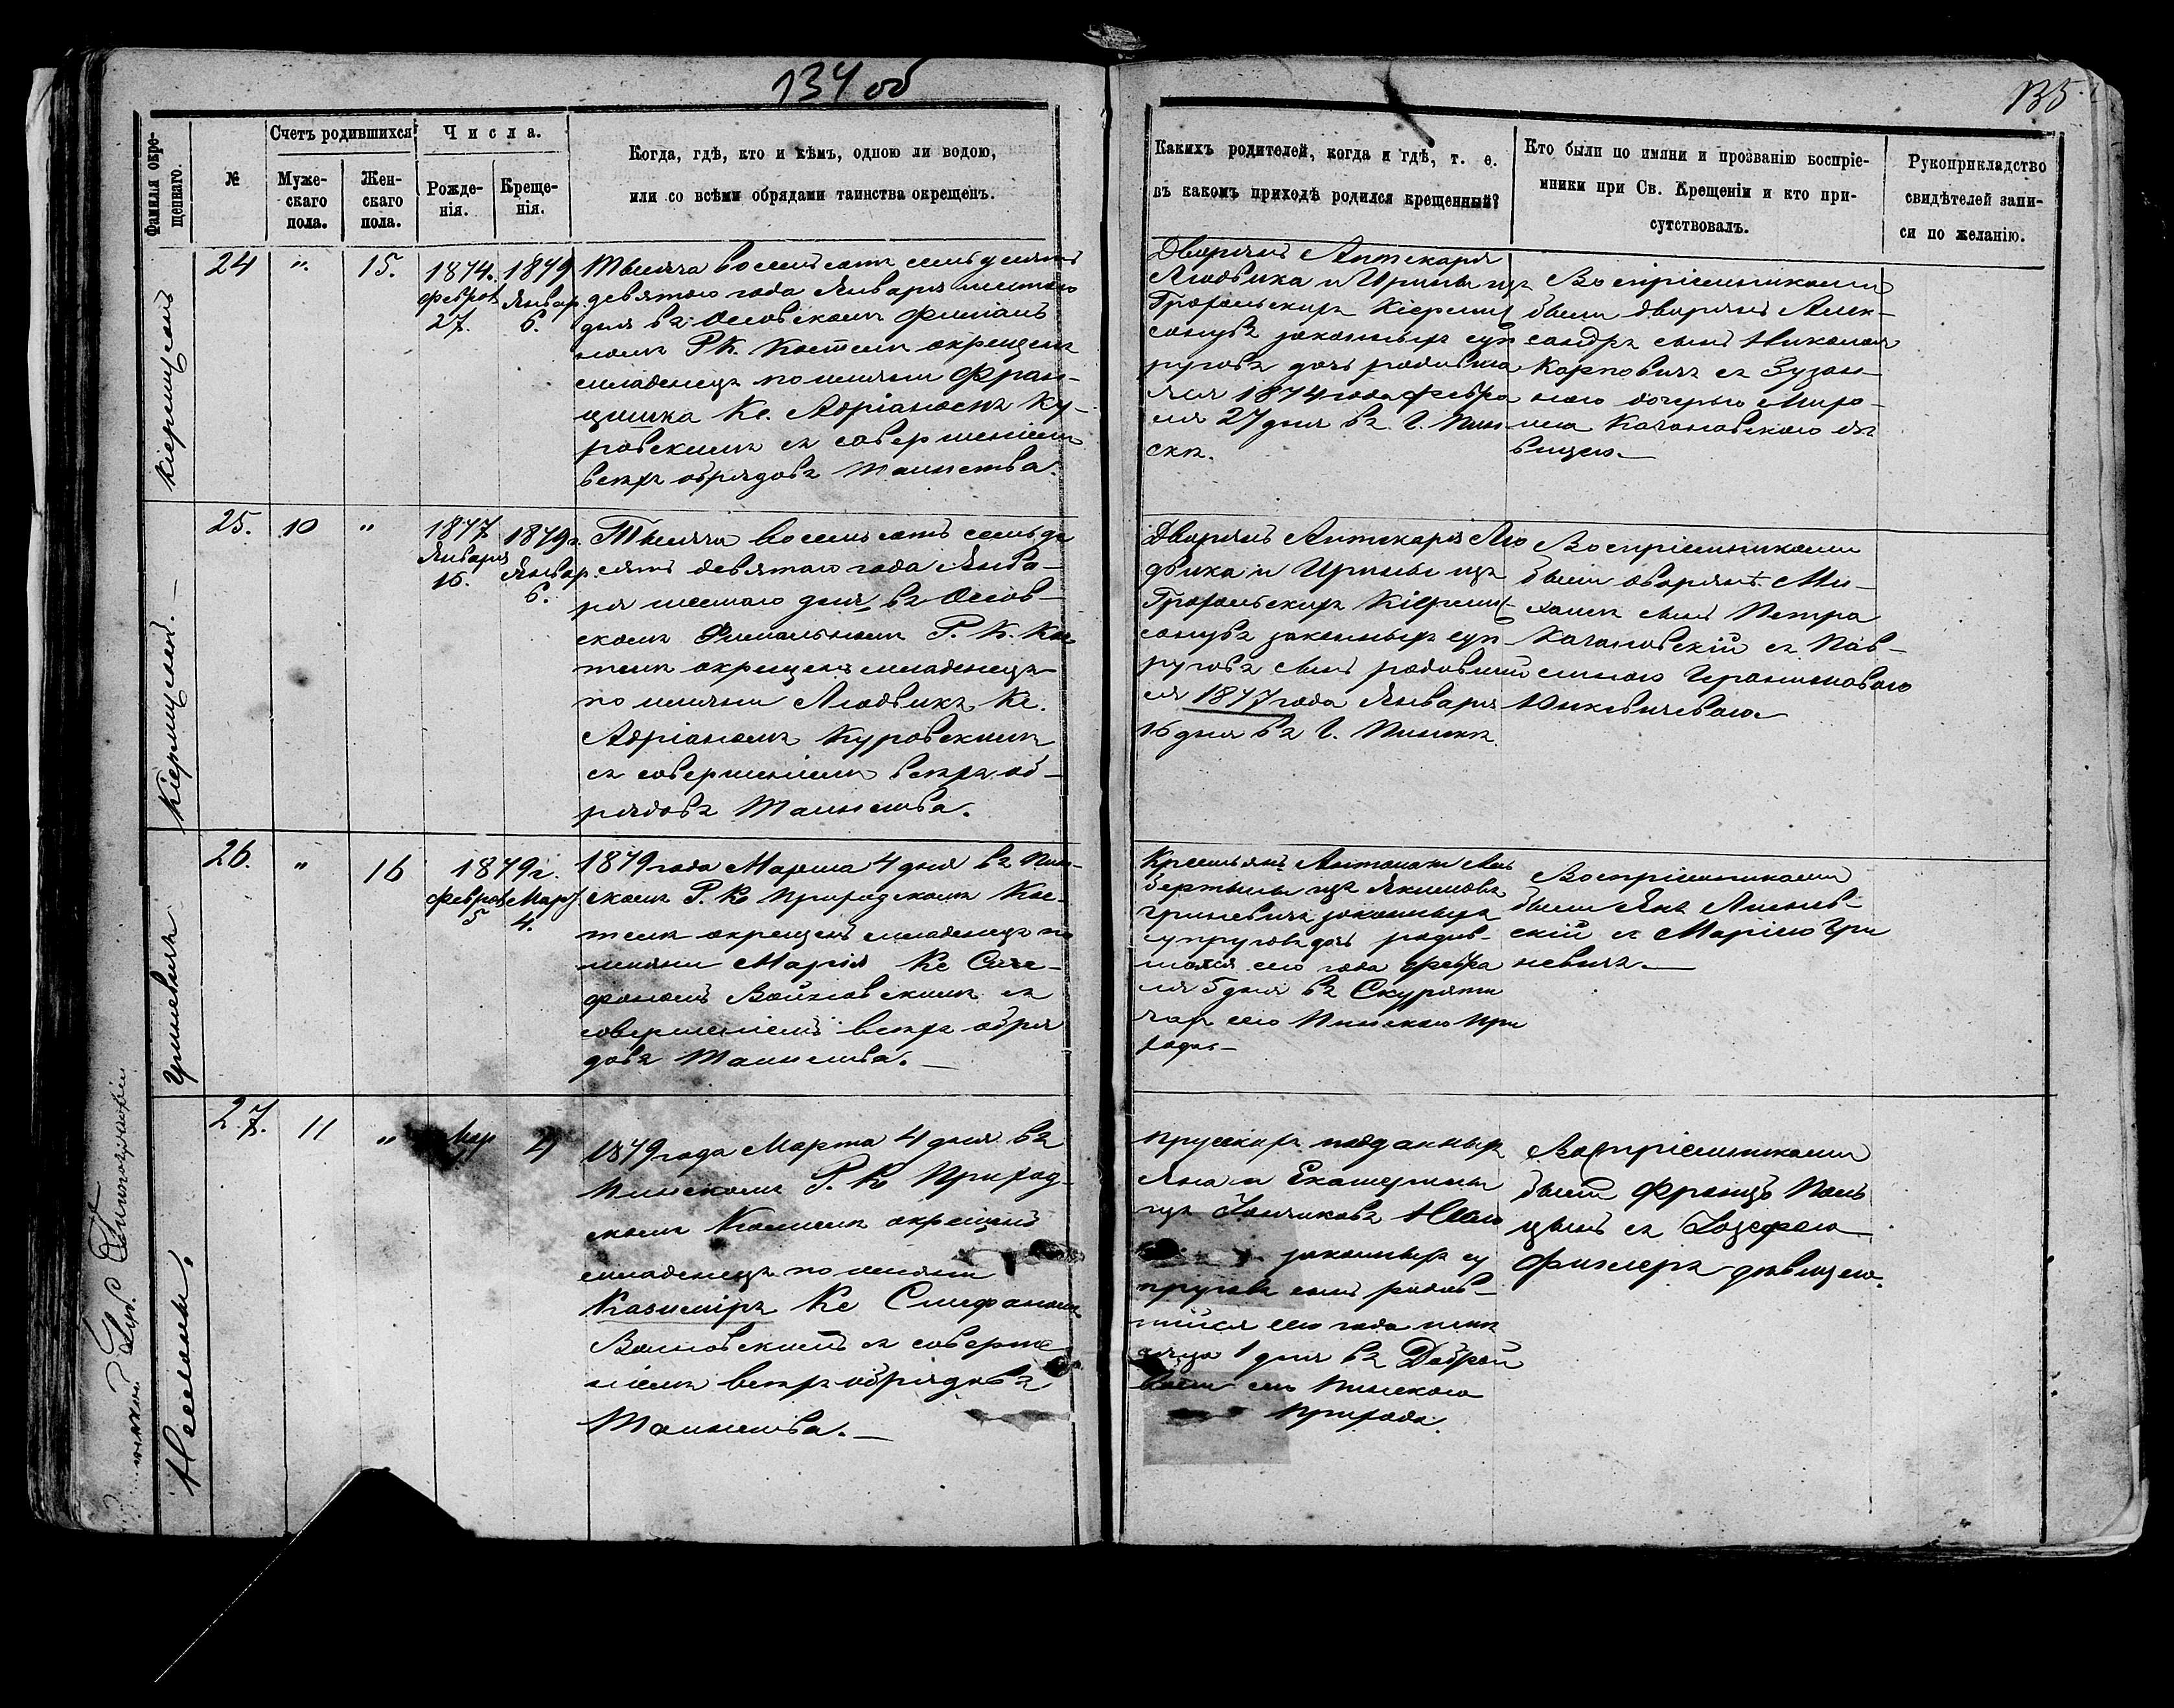 134 об
135
Фамилія окре-
щеннаго.
№
Счетъ родившихся
Муже-
скаго
пола.
Жен-
скаго
пола.
Числа.
Рожде-
нія.
Креще-
нія.
Когда, гдѣ, кто и кѣмъ, одною ли водою,
или со всѣми обрядами таинства окрещенъ.
Какихъ родителей, когда и гдѣ, т. е.
въ какомъ приходѣ родился крещенный?
Кто были по имяни и прозванію воспріе-
мники при Св. Крещеніи и кто при-
сутствовалъ.
Рукоприкладство
свидѣтелей запи-
си по желанію.
24
".
15.
1874.
Февра
27.
1879
Январ.
6.
Тысяча восемьсотъ семьдесятъ
девятаго года Января шестаго
дня въ Осовскомъ Филіаль
номъ Р.К. Костелѣ окрещенъ
младенецъ по имяни Фран-
цишка Кс. Адріаномъ Ку-
ровскимъ съ совершеніемъ
всѣхъ обрядовъ Таинства.
Дворянъ Аптекаря
Людвика и Ирины изъ
супруговъ дочь родивша
яся 1874 года Февра
ля 27 дня въ Г. Пин
скѣ.
Воспріемниками
были дворянъ Алек-
сандръ сынъ Николая
Карповичъ съ Зузан-
ною дочерью
Качановскаго дѣ
вицею.
25.
10
"
1877
Января
16.
1879 г.
Январ.
6.
Тысяча восемьсотъ семьде
сятъ девятаго года Янва-
ря шестаго дня въ Осов-
скомъ Филіальномъ Р. К. Кос
телѣ окрещенъ младенецъ
по имяни Людвикъ Кс.
Адріаномъ Куровскимъ
съ совершеніемъ всѣхъ об-
рядовъ Таинства.
Дворянъ Аптекаря Лю
двика и Ирины изъ
законныхъ суп-
руговъ сынъ родовшій
ся 1877 года Января
16 дня въ Г. Пинскѣ.
Воспріемниками
были дворянъ Ми-
хаилъ сынъ Петра
Качановскій съ Пав-
линою
26.
"
16
1879 г.
Февра
5
Мар
4.
1879 года Марта 4 дня въ Пин-
скомъ Р. К. Приходскомъ Кос-
телѣ окрещенъ младенецъ по
имяни Марія Кс Сте-
фаномъ Войновскимъ съ
совершеніемъ всѣхъ обря
довъ Таинства.
Гриневичъ законныхъ
супруговъ дочь родив-
шаяся сего года Февра
ля 5 дня въ
сего Пинскаго При
хода.
Воспріемниками
были Янъ
скій съ Маріею Гри
невичъ.
Гриневичъ
27.
11
"
Мар
4
1879 года Марта 4 дня въ
Пинскомъ Р. К. Приход-
скомъ Костелѣ окрещенъ
младенецъ по имяни
Казиміръ Кс Стефаномъ
Войновскимъ съ соверше
ніемъ всѣхъ обрядовъ
Таинства.
Прускихъ подданныхъ
Яна и Екатерины
законныхъ су
пруговъ сынъ родив-
шійся сего года
1 дня въ Доброй
волѣ сего Пинскаго
Прихода.
Воспріемниками
были Францъ
съ Іозефою
дѣвицею.